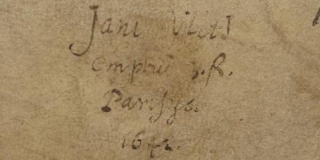 Jani Vliti
emptus 3. R.
Parisijs.
1642.